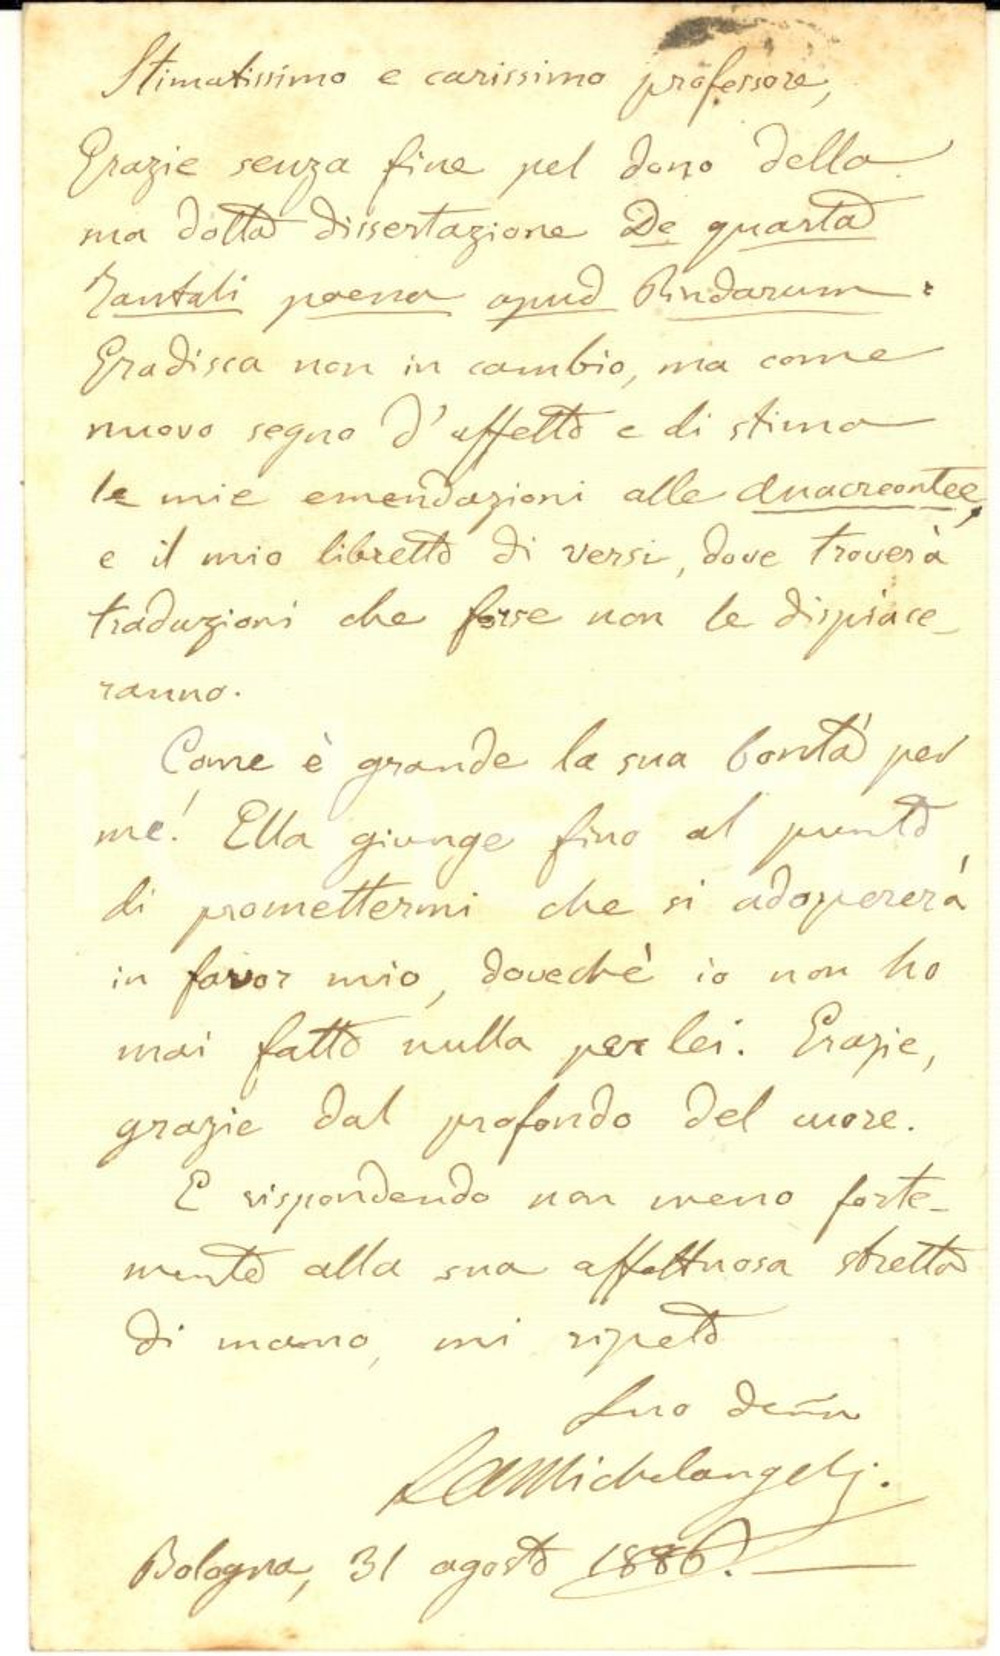 Stimatissimo e carissimo professore,
Grazie senza fine pel dono della
sua dotta dissertazione De quarta
Tantali poena apud Pindarum.
Gradisca non in cambio, ma come
nuovo segno d'affetto e di stima
le mie emendazioni alle Anacreontee,
e il mio libretto di versi, dove troverà
traduzioni che forse non le dispiace-
ranno.
Come è grande la sua bontà per
me! Ella giunge fino al punto
di promettermi che si adopererà
in favor mio, dovechè io non ho
mai fatto nulla per lei. Grazie,
grazie dal profondo del cuore.
E rispondendo non meno forte-
mente alla sua affettuosa stretta
di mano, mi ripeto
Suo
LAMichelangeli.
Bologna, 31 agosto 1886.